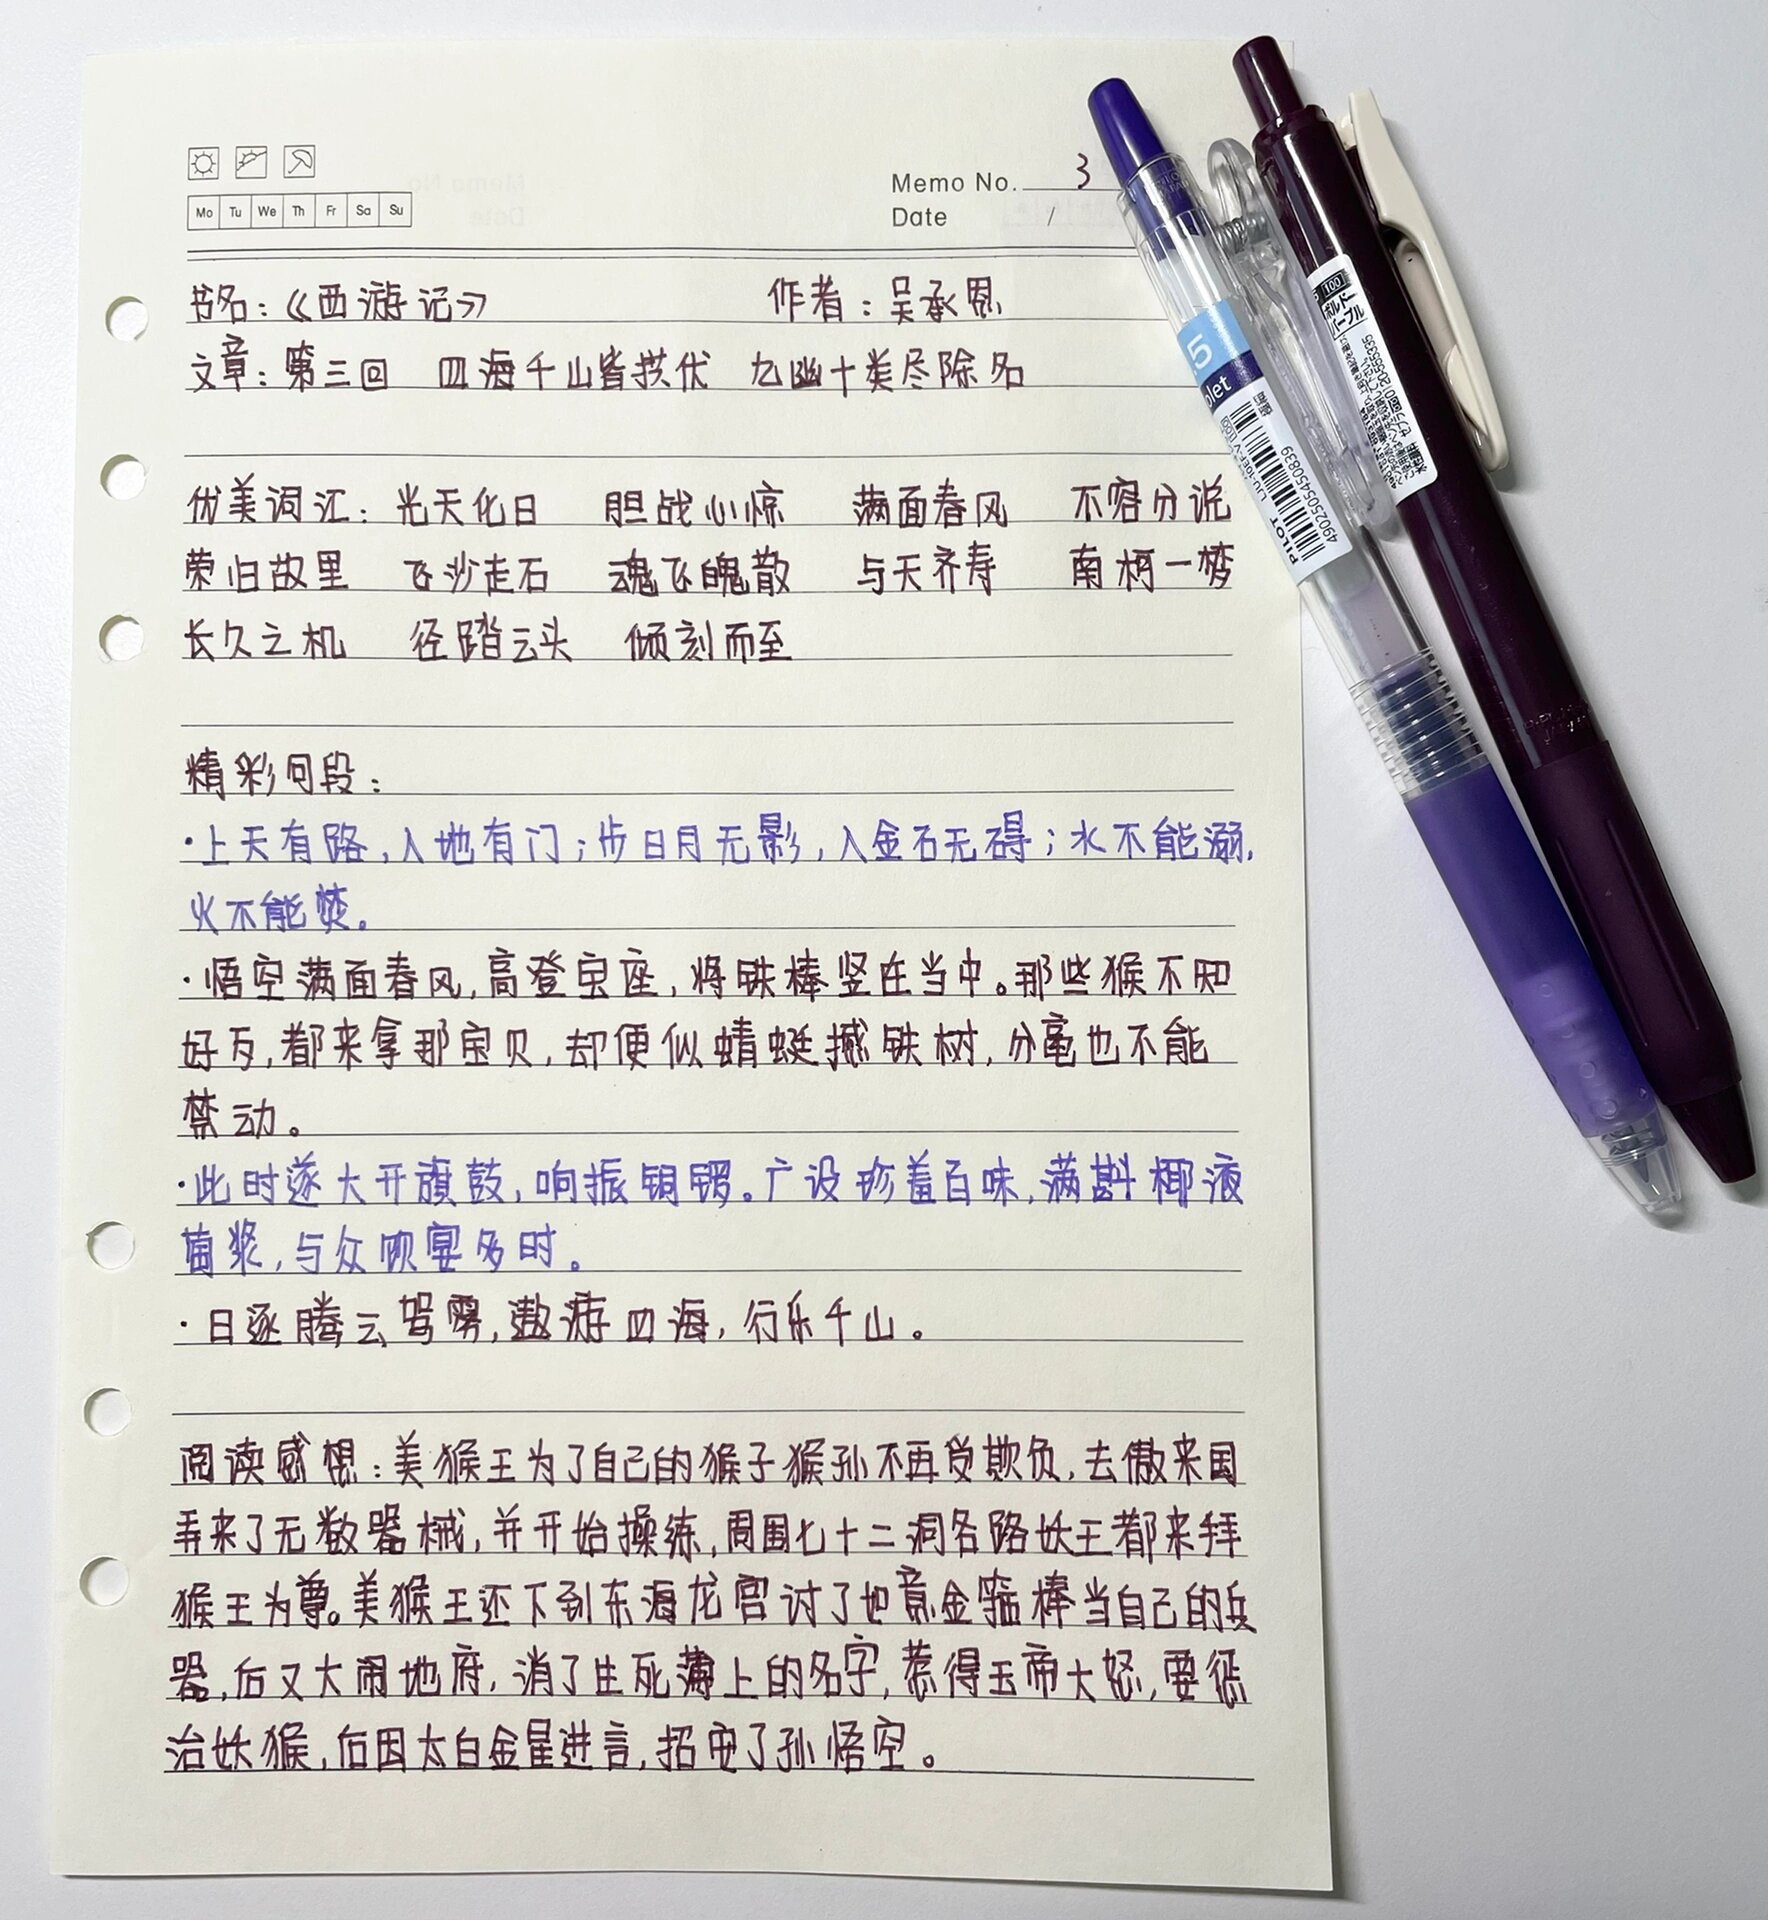 Memo No. 3
Mo Tu We Th Fr Sa Su
Date /
书名：《西游记》 作者：吴承恩
文章：第三回 四海千山皆拱伏 九幽十类尽除名
优美词汇：光天化日 胆战心惊 满面春风 不容分说
荣归故里 飞沙走石 魂飞魄散 与天齐寿 南柯一梦
长久之机 径踏云头 倾刻而至
精彩句段：
·上天有路，入地有门；步日月无影，入金石无碍；水不能溺，
火不能焚。
·悟空满面春风，高登宝座，将铁棒竖在当中。那些猴不知
好歹，都来拿那宝贝，却便似蜻蜓撼铁树，分毫也不能
禁动。
·此时遂大开旗鼓，响振铜锣。广设珍羞百味，满斟椰液
萄浆，与众饮宴多时。
·日逐腾云驾雾，遨游四海，行乐千山。
阅读感想：美猴王为了自己的猴子猴孙不再受欺负，去傲来国
弄来了无数器械，并开始操练，周围七十二洞各路妖王都来拜
猴王为尊。美猴王还下到东海龙宫讨了如意金箍棒当自己的兵
器，后又大闹地府，消了生死薄上的名字，惹得玉帝大怒，要惩
治妖猴，后因太白金星进言，招安了孙悟空。
.5
olet
PILOT
LJU-10EF-V
4902505450839
100
ボルドー
パープル